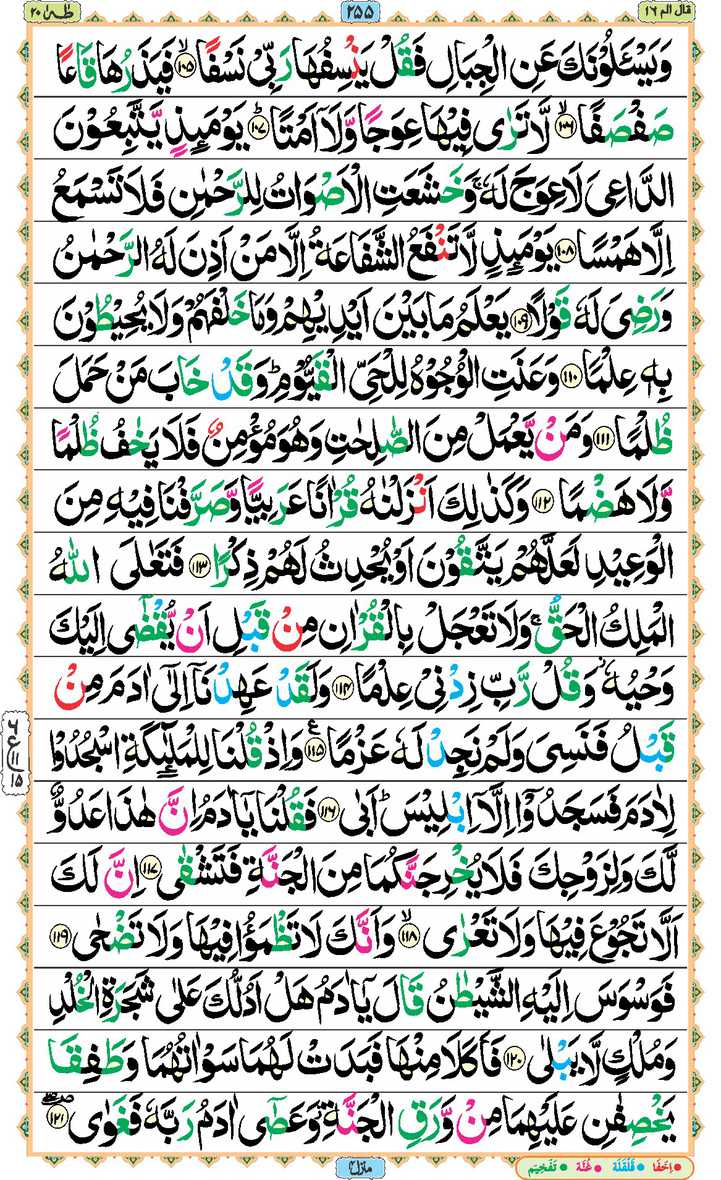 قال الم ١٦
٢٥٥
طٰهٰ ٢٠
وَيَسْـَٔلُوْنَكَ عَنِ الْجِبَالِ فَقُلْ يَنْسِفُهَا رَبِّيْ نَسْفًا ۙ‏﴿۱۰۵﴾ فَيَذَرُهَا قَاعًا
صَفْصَفًا ۙ‏﴿۱۰۶﴾ لَّا تَرٰى فِيْهَا عِوَجًا وَّلَاۤ اَمْتًا ؕ‏﴿۱۰۷﴾ يَوْمَٮِٕذٍ يَّتَّبِعُوْنَ
الدَّاعِيَ لَا عِوَجَ لَهٗ ۚ وَخَشَعَتِ الْاَصْوَاتُ لِلرَّحْمٰنِ فَلَا تَسْمَعُ
اِلَّا هَمْسًا ﴿۱۰۸﴾ يَوْمَٮِٕذٍ لَّا تَنْفَعُ الشَّفَاعَةُ اِلَّا مَنْ اَذِنَ لَهُ الرَّحْمٰنُ
وَرَضِيَ لَهٗ قَوْلًا ﴿۱۰۹﴾ يَعْلَمُ مَا بَيْنَ اَيْدِيْهِمْ وَمَا خَلْفَهُمْ وَلَا يُحِيْطُوْنَ
بِهٖ عِلْمًا ﴿۱۱۰﴾ وَعَنَتِ الْوُجُوْهُ لِلْحَيِّ الْقَيُّوْمِ ؕ وَقَدْ خَابَ مَنْ حَمَلَ
ظُلْمًا ﴿۱۱۱﴾ وَمَنْ يَّعْمَلْ مِنَ الصّٰلِحٰتِ وَهُوَ مُؤْمِنٌ فَلَا يَخٰفُ ظُلْمًا
وَّلَا هَضْمًا ﴿۱۱۲﴾ وَكَذٰلِكَ اَنْزَلْنٰهُ قُرْاٰنًا عَرَبِيًّا وَّصَرَّفْنَا فِيْهِ مِنَ
الْوَعِيْدِ لَعَلَّهُمْ يَتَّقُوْنَ اَوْ يُحْدِثُ لَهُمْ ذِكْرًا ﴿۱۱۳﴾ فَتَعٰلَى اللّٰهُ
الْمَلِكُ الْحَقُّ ۚ وَلَا تَعْجَلْ بِالْقُرْاٰنِ مِنْ قَبْلِ اَنْ يُّقْضٰۤى اِلَيْكَ
وَحْيُهٗ ؗ وَقُلْ رَّبِّ زِدْنِيْ عِلْمًا ﴿۱۱۴﴾ وَلَقَدْ عَهِدْنَاۤ اِلٰۤى اٰدَمَ مِنْ
قَبْلُ فَنَسِيَ وَلَمْ نَجِدْ لَهٗ عَزْمًا ﴿۱۱۵﴾ ع وَاِذْ قُلْنَا لِلْمَلٰٓٮِٕكَةِ اسْجُدُوْا
لِاٰدَمَ فَسَجَدُوْۤا اِلَّاۤ اِبْلِيْسَ ؕ اَبٰى ﴿۱۱۶﴾ فَقُلْنَا يٰۤاٰدَمُ اِنَّ هٰذَا عَدُوٌّ
لَّكَ وَلِزَوْجِكَ فَلَا يُخْرِجَنَّكُمَا مِنَ الْجَنَّةِ فَتَشْقٰى ﴿۱۱۷﴾ اِنَّ لَكَ
اَلَّا تَجُوْعَ فِيْهَا وَلَا تَعْرٰى ۙ‏﴿۱۱۸﴾ وَاَنَّكَ لَا تَظْمَؤُا فِيْهَا وَلَا تَضْحٰى ﴿۱۱۹﴾
فَوَسْوَسَ اِلَيْهِ الشَّيْطٰنُ قَالَ يٰۤاٰدَمُ هَلْ اَدُلُّكَ عَلٰى شَجَرَةِ الْخُلْدِ
وَمُلْكٍ لَّا يَبْلٰى ﴿۱۲۰﴾ فَاَكَلَا مِنْهَا فَبَدَتْ لَهُمَا سَوْاٰتُهُمَا وَطَفِقَا
يَخْصِفٰنِ عَلَيْهِمَا مِنْ وَّرَقِ الْجَنَّةِ ؗ وَعَصٰۤى اٰدَمُ رَبَّهٗ فَغَوٰى ﴿۱۲۱﴾
٦
ع ١١
١٥
منزل ٤
اِخفَا • قَلقَلَة • غُنَّة • تَفخِيم •